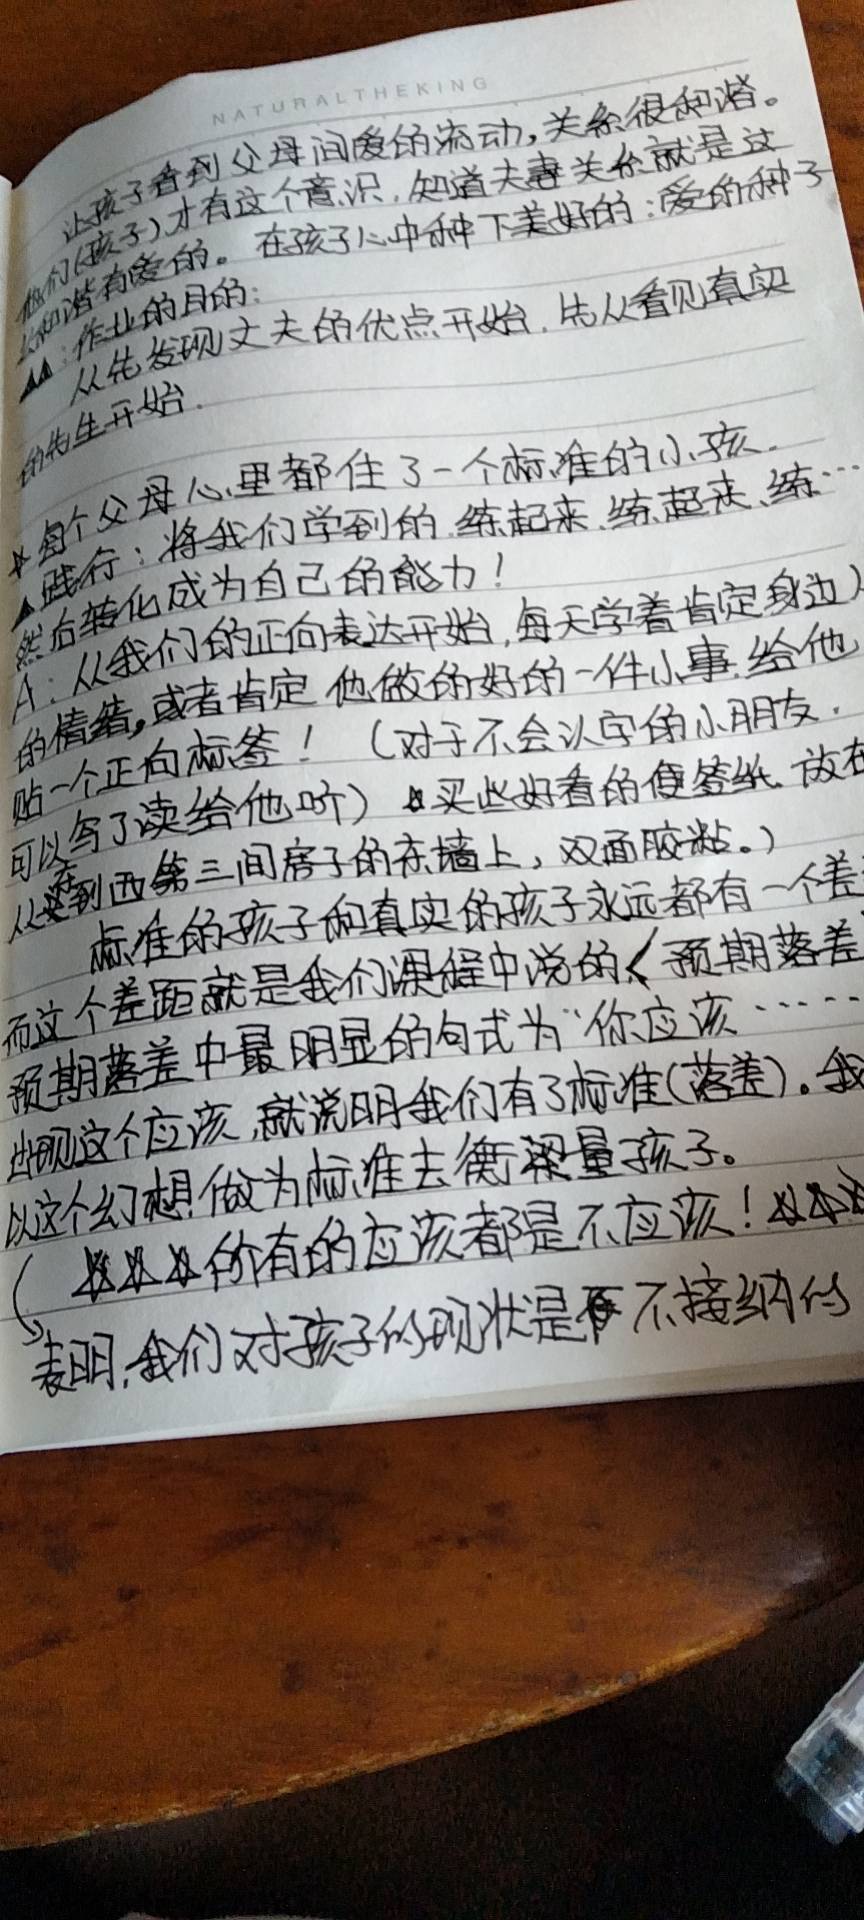 NATURALTHEKING
让孩子看到父母间爱的流动,关系很和谐。
他们(孩子)才有这个意识,知道夫妻关系就是这
么和谐有爱的。在孩子心中种下美好的:爱的种子
▲▲:作业的目的:
从先发现丈夫的优点开始,先从看见真实
的先生开始.
☆每个父母心里都住了一个标准的小孩.
▲践行:将我们学到的,练起来、练起来、练…
然后转化成为自己的能力!
A:从我们的正向表达开始,每天学着肯定身边人
的情绪,或者肯定他做的好的一件小事.给他
贴一个正向标签!(对于不会认字的小朋友.
可以写了读给他听)☆买些好看的便签纸.放在
从东到西第三间房子的东墙上,双面胶粘。)
标准的孩子和真实的孩子永远都有一个差
而这个差距就是我们课程中说的《预期落差
预期落差中最明显的句式为“你应该……
出现这个应该,就说明我们有了标准(落差)。我
以这个幻想,做为标准去衡量孩子。
☆☆☆所有的应该都是不应该!☆☆☆
表明,我们对孩子的现状是不接纳的